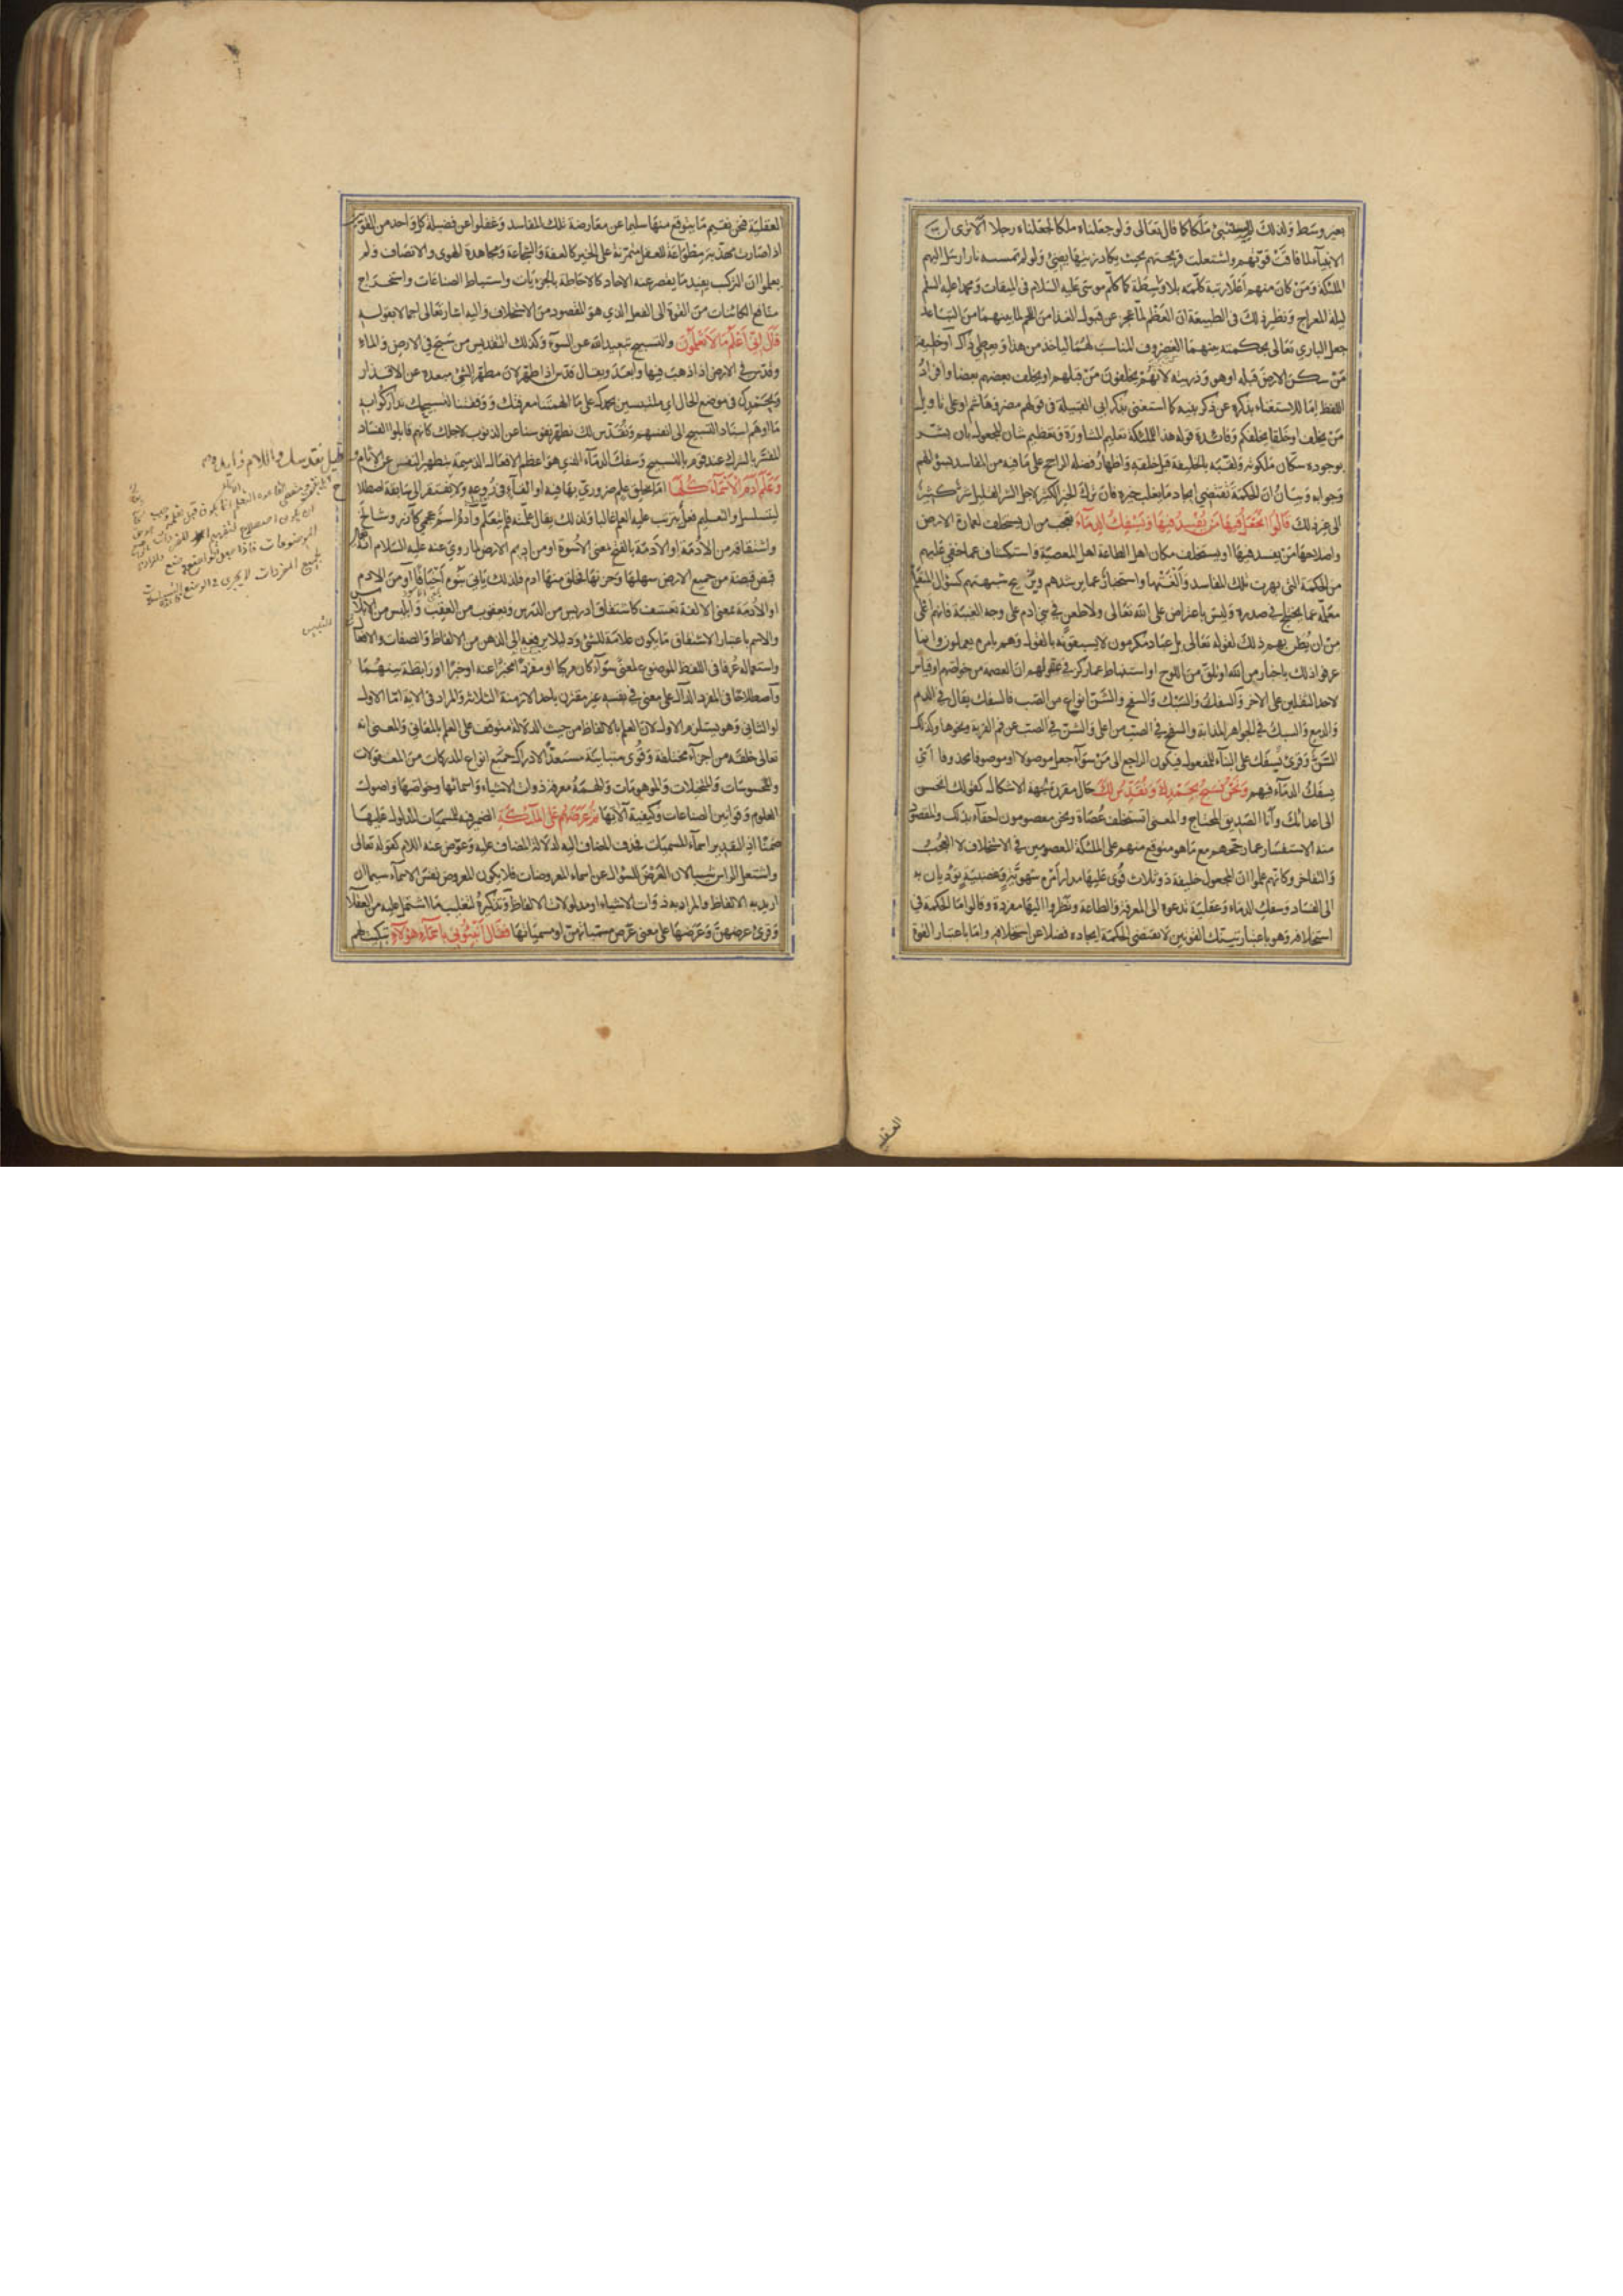 بغير وسط ولذلك لم يستنبئ ملكا كما قال تعالى ولو جعلناه ملكا لجعلناه رجلا الا ترى ان
الانبياء لما فاقت قوتهم واشتعلت قريحتهم بحيث يكاد زيتها يضئ ولو لم تمسسه نار ارسل اليهم
الملئكة ومن كان منهم اعلا رتبة كلمه بلا واسطة كما كلم موسى عليه السلام في الميقات ومحمدا عليه السلم
ليلة المعراج ونظير ذلك في الطبيعة ان العظم لما عجز عن قبول الغذا من اللحم لما بينهما من التباعد
جعل الباري تعالى بحكمته بينهما الغضروف المناسب لهما ليأخذ من هذا ويعطي ذاك او خليفة
من سكن الارض قبله او هو وذريته لانهم يخلفون من قبلهم او يخلف بعضهم بعضا وافراد
اللفظ اما للاستغناء بذكره عن ذكر بنيه كما استغنى بذكر ابي القبيلة في قولهم مضر وهاشم او على تاويل
من يخلف او خلقا يخلفكم وفائدة قوله هذا للملئكة تعليم المشاورة وتعظيم شان المجعول بان بشر
بوجوده سكان ملكوته ولقبه بالخليفة قبل خلقه واظهار فضله الراجح على ما فيه من المفاسد بسؤالهم
وجوابه وبيان ان الحكمة تقتضي ايجاد ما يغلب خيره فان ترك الخير الكثير لاجل الشر القليل شر كثير
الى غير ذلك قالوا اتجعل فيها من يفسد فيها ويسفك الدماء تعجب من ان يستخلف لعمارة الارض
واصلاحها من يفسد فيها او يستخلف مكان اهل الطاعة اهل المعصية واستكشاف عما خفي عليهم
من الحكمة التي بهرت تلك المفاسد والغتها واستخبار عما يرشدهم ويزيح شبهتهم كسؤال المتعلم
معلمه عما يختلج في صدره وليس باعتراض على الله تعالى ولا طعن في بني ادم على وجه الغيبة فانهم اعلى
من ان يظن بهم ذلك لقوله تعالى بل عباد مكرمون لا يسبقونه بالقول وهم بامره يعملون وانما
عرفوا ذلك باخبار من الله او تلق من اللوح او استنباط عما ركز في عقولهم ان العصمة من خواصهم او قياس
لاحد الثقلين على الاخر والسفك والسبك والسفح والشن انواع من الصب فالسفك يقال في الدم
والدمع والسبك في الجواهر المذابة والسفح في الصب من اعلى والشن في الصب عن فم القربة ونحوها وكذلك
السن وقرئ يسفك على البناء للمفعول فيكون الراجع الى من سوآء جعل موصولا او موصوفا محذوفا اي
يسفك الدماء فيهم ونحن نسبح بحمدك ونقدس لك حال مقررة لجهة الاشكال كقولك اتحسن
الى اعدائك وانا الصديق المحتاج والمعنى اتستخلف عصاة ونحن معصومون احقاء بذلك والمقصود
منه الاستفسار عما رجحهم مع ما هو متوقع منهم على الملئكة المعصومين في الاستخلاف لا العجب
والتفاخر وكانهم علموا ان المجعول خليفة ذو ثلاث قوى عليها مدار امره شهوية وغضبية تؤديان به
الى الفساد وسفك الدماء وعقلية تدعوه الى المعرفة والطاعة ونظروا اليها مفردة وقالوا ما الحكمة في
استخلافه وهو باعتبار تينك القوتين لا تقتضي الحكمة ايجاده فضلا عن استخلافه واما باعتبار القوة
العقلية
العقلية فنحن نقيم ما يتوقع منها سليما عن معارضة تلك المفاسد وغفلوا عن فضيلة كل واحد من القوتين
اذا صارت مهذبة مطواعة للعقل متمرنة على الخير كالعفة والشجاعة ومجاهدة الهوى والانصاف ولم
يعلموا ان التركيب يفيد ما يقصر عنه الاحاد كالاحاطة بالجزئيات واستنباط الصناعات واستخراج
منافع الكائنات من القوة الى الفعل الذي هو المقصود من الاستخلاف واليه اشار تعالى اجمالا بقوله
قال اني اعلم ما لا تعلمون والتسبيح تبعيد الله عن السوء وكذلك التقديس من سبح في الارض والماء
وقدس في الارض اذا ذهب فيها وابعد ويقال قدس اذا طهر لان مطهر الشئ مبعده عن الاقذار
وبحمدك في موضع الحال اي ملتبسين بحمدك على ما الهمتنا معرفتك ووفقتنا لتسبيحك تداركوا به
ما اوهم اسناد التسبيح الى انفسهم ونقدس لك نطهر نفوسنا عن الذنوب لاجلك كانهم قابلوا الفساد
المفسر بالشرك عند قوم بالتسبيح وسفك الدماء الذي هو اعظم الافعال الذميمة بتطهير النفس عن الاثام
وعلم ادم الاسماء كلها اما بخلق علم ضروري بها فيه او القاء في روعه ولا يفتقر الى سابقة اصطلاح
ليتسلسل والتعليم فعل يترتب عليه العلم غالبا ولذلك يقال علمته فلم يتعلم وآدم اسم عجمي كآزر وشالخ
واشتقاقه من الادمة او الادمة بالفتح بمعنى الاسوة او من اديم الارض لما روي عنه عليه السلام انه
قبض قبضة من جميع الارض سهلها وحزنها فخلق منها ادم فلذلك ياتي بنوه اخيافا او من الادم
او الادمة بمعنى الالفة تعسف كاشتقاق ادريس من الدرس ويعقوب من العقب وابليس من الابلاس
والاسم باعتبار الاشتقاق ما يكون علامة للشئ ودليلا يرفعه الى الذهن من الالفاظ والصفات والافعال
واستعماله عرفا في اللفظ الموضوع لمعنى سوآء كان مركبا او مفردا مخبرا عنه او خبرا او رابطة بينهما
واصطلاحا في المفرد الدال على معنى في نفسه غير مقترن باحد الازمنة الثلاثة والمراد في الاية اما الاول
او الثاني وهو يستلزم الاول لان العلم بالالفاظ من حيث الدلالة متوقف على العلم بالمعاني والمعنى انه
تعالى خلقه من اجزاء مختلطة وقوى متباينة مستعدا لادراك جميع انواع المدركات من المعقولات
والمحسوسات والمتخيلات والموهومات والهمه معرفة ذوات الاشياء واسمائها وخواصها واصول
العلوم وقوانين الصناعات وكيفية آلاتها ثم عرضهم على الملئكة الضمير فيه للمسميات المدلول عليها
ضمنا اذ التقدير اسماء المسميات فحذف المضاف اليه لدلالة المضاف عليه وعوض عنه اللام كقوله تعالى
واشتعل الراس شيبا لان العرض للسؤال عن اسماء المعروضات فلا يكون المعروض نفس الاسماء سيما ان
اريد به الالفاظ والمراد به ذوات الاشياء او مدلولات الالفاظ وتذكيره لتغليب ما اشتمل عليه من العقلا
وقرئ عرضهن وعرضها على معنى عرض مسمياتهن او مسمياتها فقال انبئوني باسماء هؤلاء تبكيت لهم